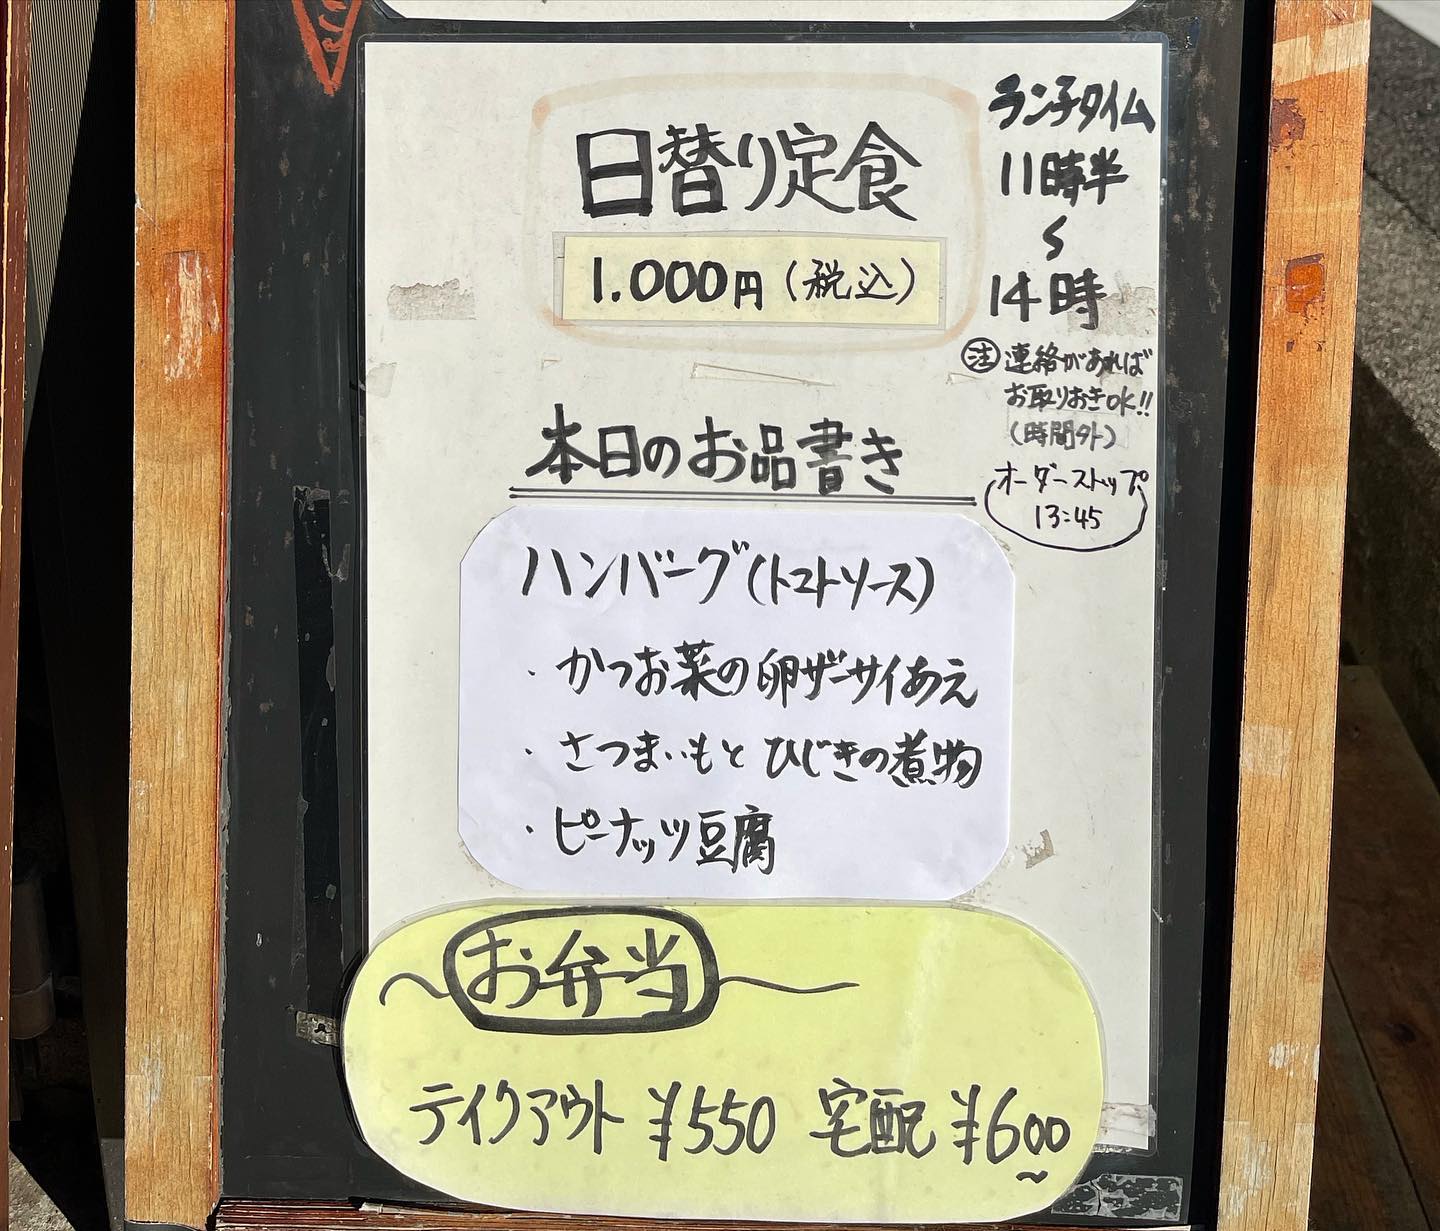 日替り定食
1.000円(税込)
ランチタイム
11時半
〜
14時
注 連絡があれば
お取りおきOK!!
(時間外)
オーダーストップ
13:45
本日のお品書き
ハンバーグ(トマトソース)
・かつお菜の卵ザーサイあえ
・さつまいもとひじきの煮物
・ピーナッツ豆腐
〜お弁当〜
テイクアウト ¥550 宅配 ¥600〜